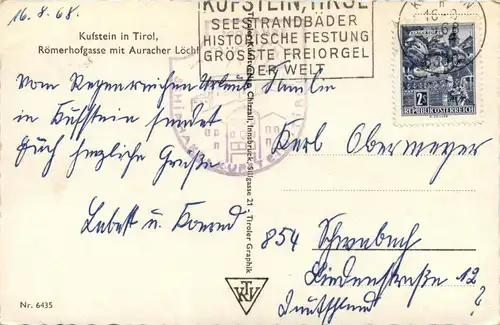 16.8.68.
Kufstein in Tirol,
Römerhofgasse mit Auracher Löchl
KUFSTEIN, TIROL
SEESTRANDBÄDER
HISTORISCHE FESTUNG
GRÖSSTE FREIORGEL
DER WELT
2S
REPUBLIK ÖSTERREICH
Vom Regenreichen Urlaub
in Kufstein sendet
Euch herzliche Grüße
u. Konrad
Familie
Karl Obermeyer
854 Schwabach
Lindenstraße 12
Deutschland
Chizzali, Innsbruck, Sillgasse 21 - Tiroler Graphik
KTV
Nr. 6435